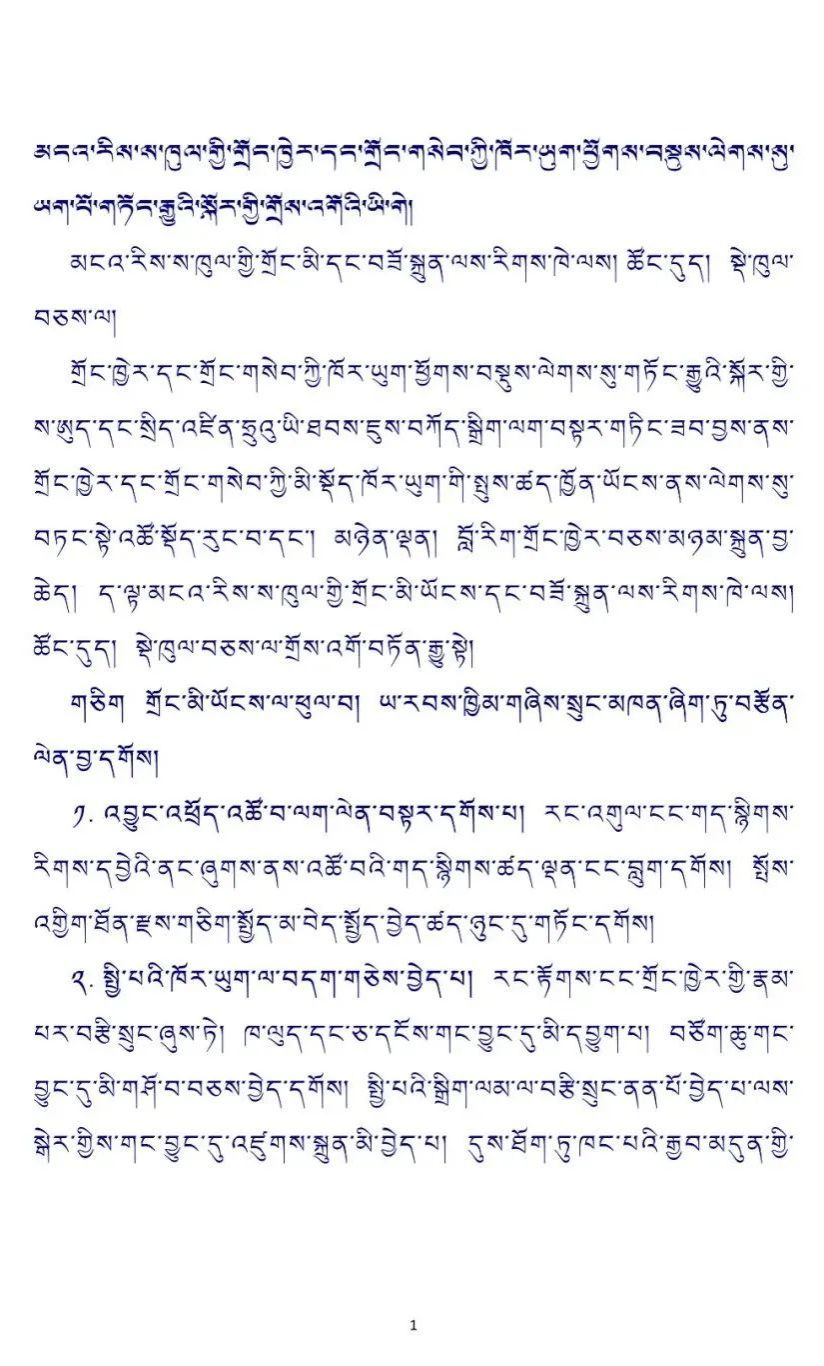 མངའ་རིས་ས་ཁུལ་གྱི་གྲོང་ཁྱེར་དང་གྲོང་གསེབ་ཀྱི་ཁོར་ཡུག་ཕྱོགས་བསྡུས་ལེགས་སུ་
ཡག་པོ་གཏོང་རྒྱུའི་སྐོར་གྱི་གྲོས་འགོའི་ཡི་གེ།
མངའ་རིས་ས་ཁུལ་གྱི་གྲོང་མི་དང་བཟོ་སྐྲུན་ལས་རིགས་ཁེ་ལས། ཚོང་དུད། སྡེ་ཁུལ་
བཅས་ལ།
གྲོང་ཁྱེར་དང་གྲོང་གསེབ་ཀྱི་ཁོར་ཡུག་ཕྱོགས་བསྡུས་ལེགས་སུ་གཏོང་རྒྱུའི་སྐོར་གྱི་
ས་ཨུད་དང་སྲིད་འཛིན་ཧྲུའུ་ཡི་ཐབས་ཇུས་བཀོད་སྒྲིག་ལག་བསྟར་གཏིང་ཟབ་བྱས་ནས་
གྲོང་ཁྱེར་དང་གྲོང་གསེབ་ཀྱི་མི་སྡོད་ཁོར་ཡུག་གི་སྤུས་ཚད་ཁྱོན་ཡོངས་ནས་ལེགས་སུ་
བཏང་སྟེ་འཚོ་སྡོད་རུང་བ་དང་། མཉེན་ལྡན། བློ་རིག་གྲོང་ཁྱེར་བཅས་མཉམ་སྐྲུན་བྱ་
ཆེད། ད་ལྟ་མངའ་རིས་ས་ཁུལ་གྱི་གྲོང་མི་ཡོངས་དང་བཟོ་སྐྲུན་ལས་རིགས་ཁེ་ལས།
ཚོང་དུད། སྡེ་ཁུལ་བཅས་ལ་གྲོས་འགོ་བཏོན་རྒྱུ་སྟེ།
གཅིག གྲོང་མི་ཡོངས་ལ་ཕུལ་བ། ཡ་རབས་ཁྱིམ་གཞིས་སྲུང་མཁན་ཞིག་ཏུ་བརྩོན་
ལེན་བྱ་དགོས།
༡. འབྱུང་འཕྲོད་འཚོ་བ་ལག་ལེན་བསྟར་དགོས་པ། རང་འགུལ་ངང་གད་སྙིགས་
རིགས་དབྱེའི་ནང་ཞུགས་ནས་འཚོ་བའི་གད་སྙིགས་ཚད་ལྡན་ངང་བླུག་དགོས། སྤོས་
འགྱིག་ཐོན་རྫས་གཅིག་སྤྱོད་མ་བེད་སྤྱོད་བྱེད་ཚད་ཉུང་དུ་གཏོང་དགོས།
༢. སྤྱི་པའི་ཁོར་ཡུག་ལ་བདག་གཅེས་བྱེད་པ། རང་རྟོགས་ངང་གྲོང་ཁྱེར་གྱི་རྣམ་
པར་བརྩི་སྲུང་ཞུས་ཏེ། ཁ་ལུད་དང་ཅ་དངོས་གང་བྱུང་དུ་མི་དབྱུག་པ། བཙོག་ཆུ་གང་
བྱུང་དུ་མི་གཤོ་བ་བཅས་བྱེད་དགོས། སྤྱི་པའི་སྒྲིག་ལམ་ལ་བརྩི་སྲུང་ནན་པོ་བྱེད་པ་ལས་
སྒེར་གྱིས་གང་བྱུང་དུ་འཛུགས་སྐྲུན་མི་བྱེད་པ། དུས་ཐོག་ཏུ་ཁང་པའི་རྒྱབ་མདུན་གྱི་
1